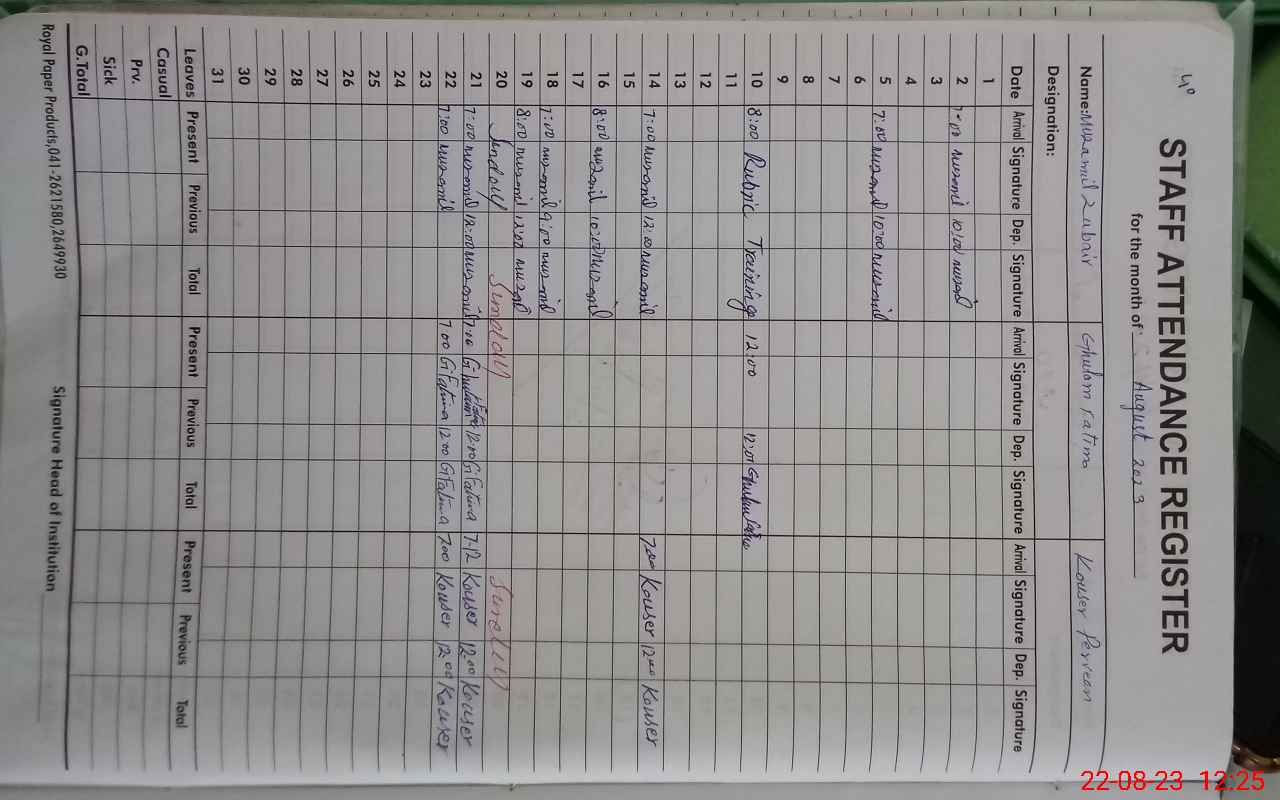 STAFF ATTENDANCE REGISTER
for the month of August 2023
Name: Muzamil Zubair Ghulam Fatima Kouser Perveen
Designation:
Date Arrival Signature Dep. Signature Arrival Signature Dep. Signature Arrival Signature Dep. Signature
1
2 7:00 muzamil 10:00 muzamil
3
4
5 7:00 muzamil 10:00 muzamil
6
7
8
9
10 8:00 Rubric Training 12:00 12:00 Ghulam Fatima
11
12
13
14 7:00 muzamil 12:00 muzamil 7:00 Kouser 12:00 Kouser
15
16 8:00 muzamil 10:00 muzamil
17
18 7:00 muzamil 9:00 muzamil
19 8:00 muzamil 12:00 muzamil
20 Sunday Sunday Sunday
21 7:00 muzamil 12:00 muzamil 7:00 G.Fatima 12:00 G.Fatima 7-12 Kouser 12:00 Kouser
22 7:00 muzamil 7:00 G.Fatima 12:00 G.Fatima 7:00 Kouser 12:00 Kouser
23
24
25
26
27
28
29
30
31
Leaves Present Previous Total Present Previous Total Present Previous Total
Casual
Prv.
Sick
G.Total
Signature Head of Institution
Royal Paper Products,041-2621580,2649930
22-08-23 12:25